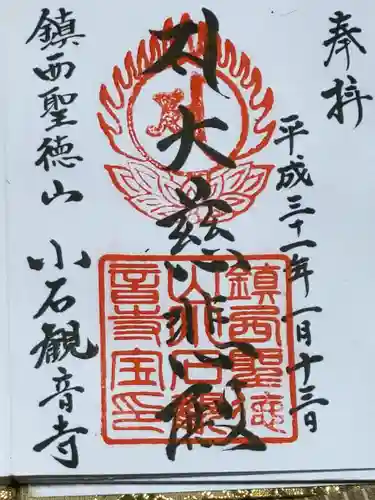 奉拝
平成三十一年一月十三日
大慈悲殿
鎮西聖徳山
小石観音寺
鎮西聖徳
山小石観
音寺宝印